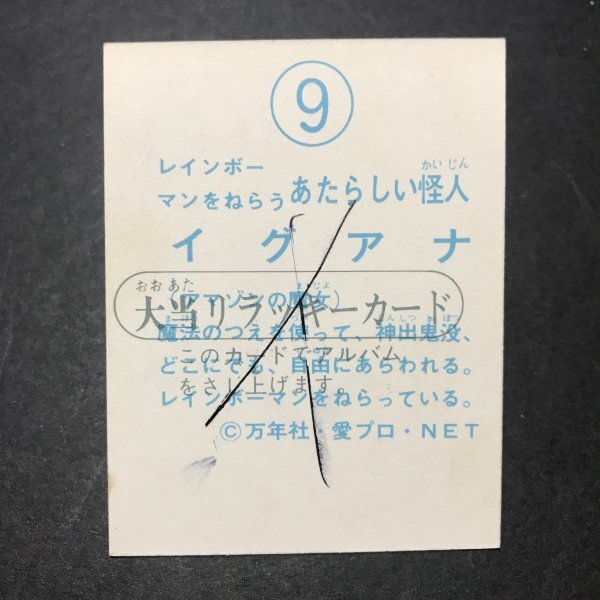 9
レインボー
マンをねらう あたらしい怪人
かいじん
イグアナ
(アマゾンの魔女)
まじょ
おおあた
大当リラッキーカード
魔法のつえを使って、神出鬼没、
どこにでも、自由にあらわれる。
レインボーマンをねらっている。
このカードでアルバム
をさし上げます。
©万年社・愛プロ・NET